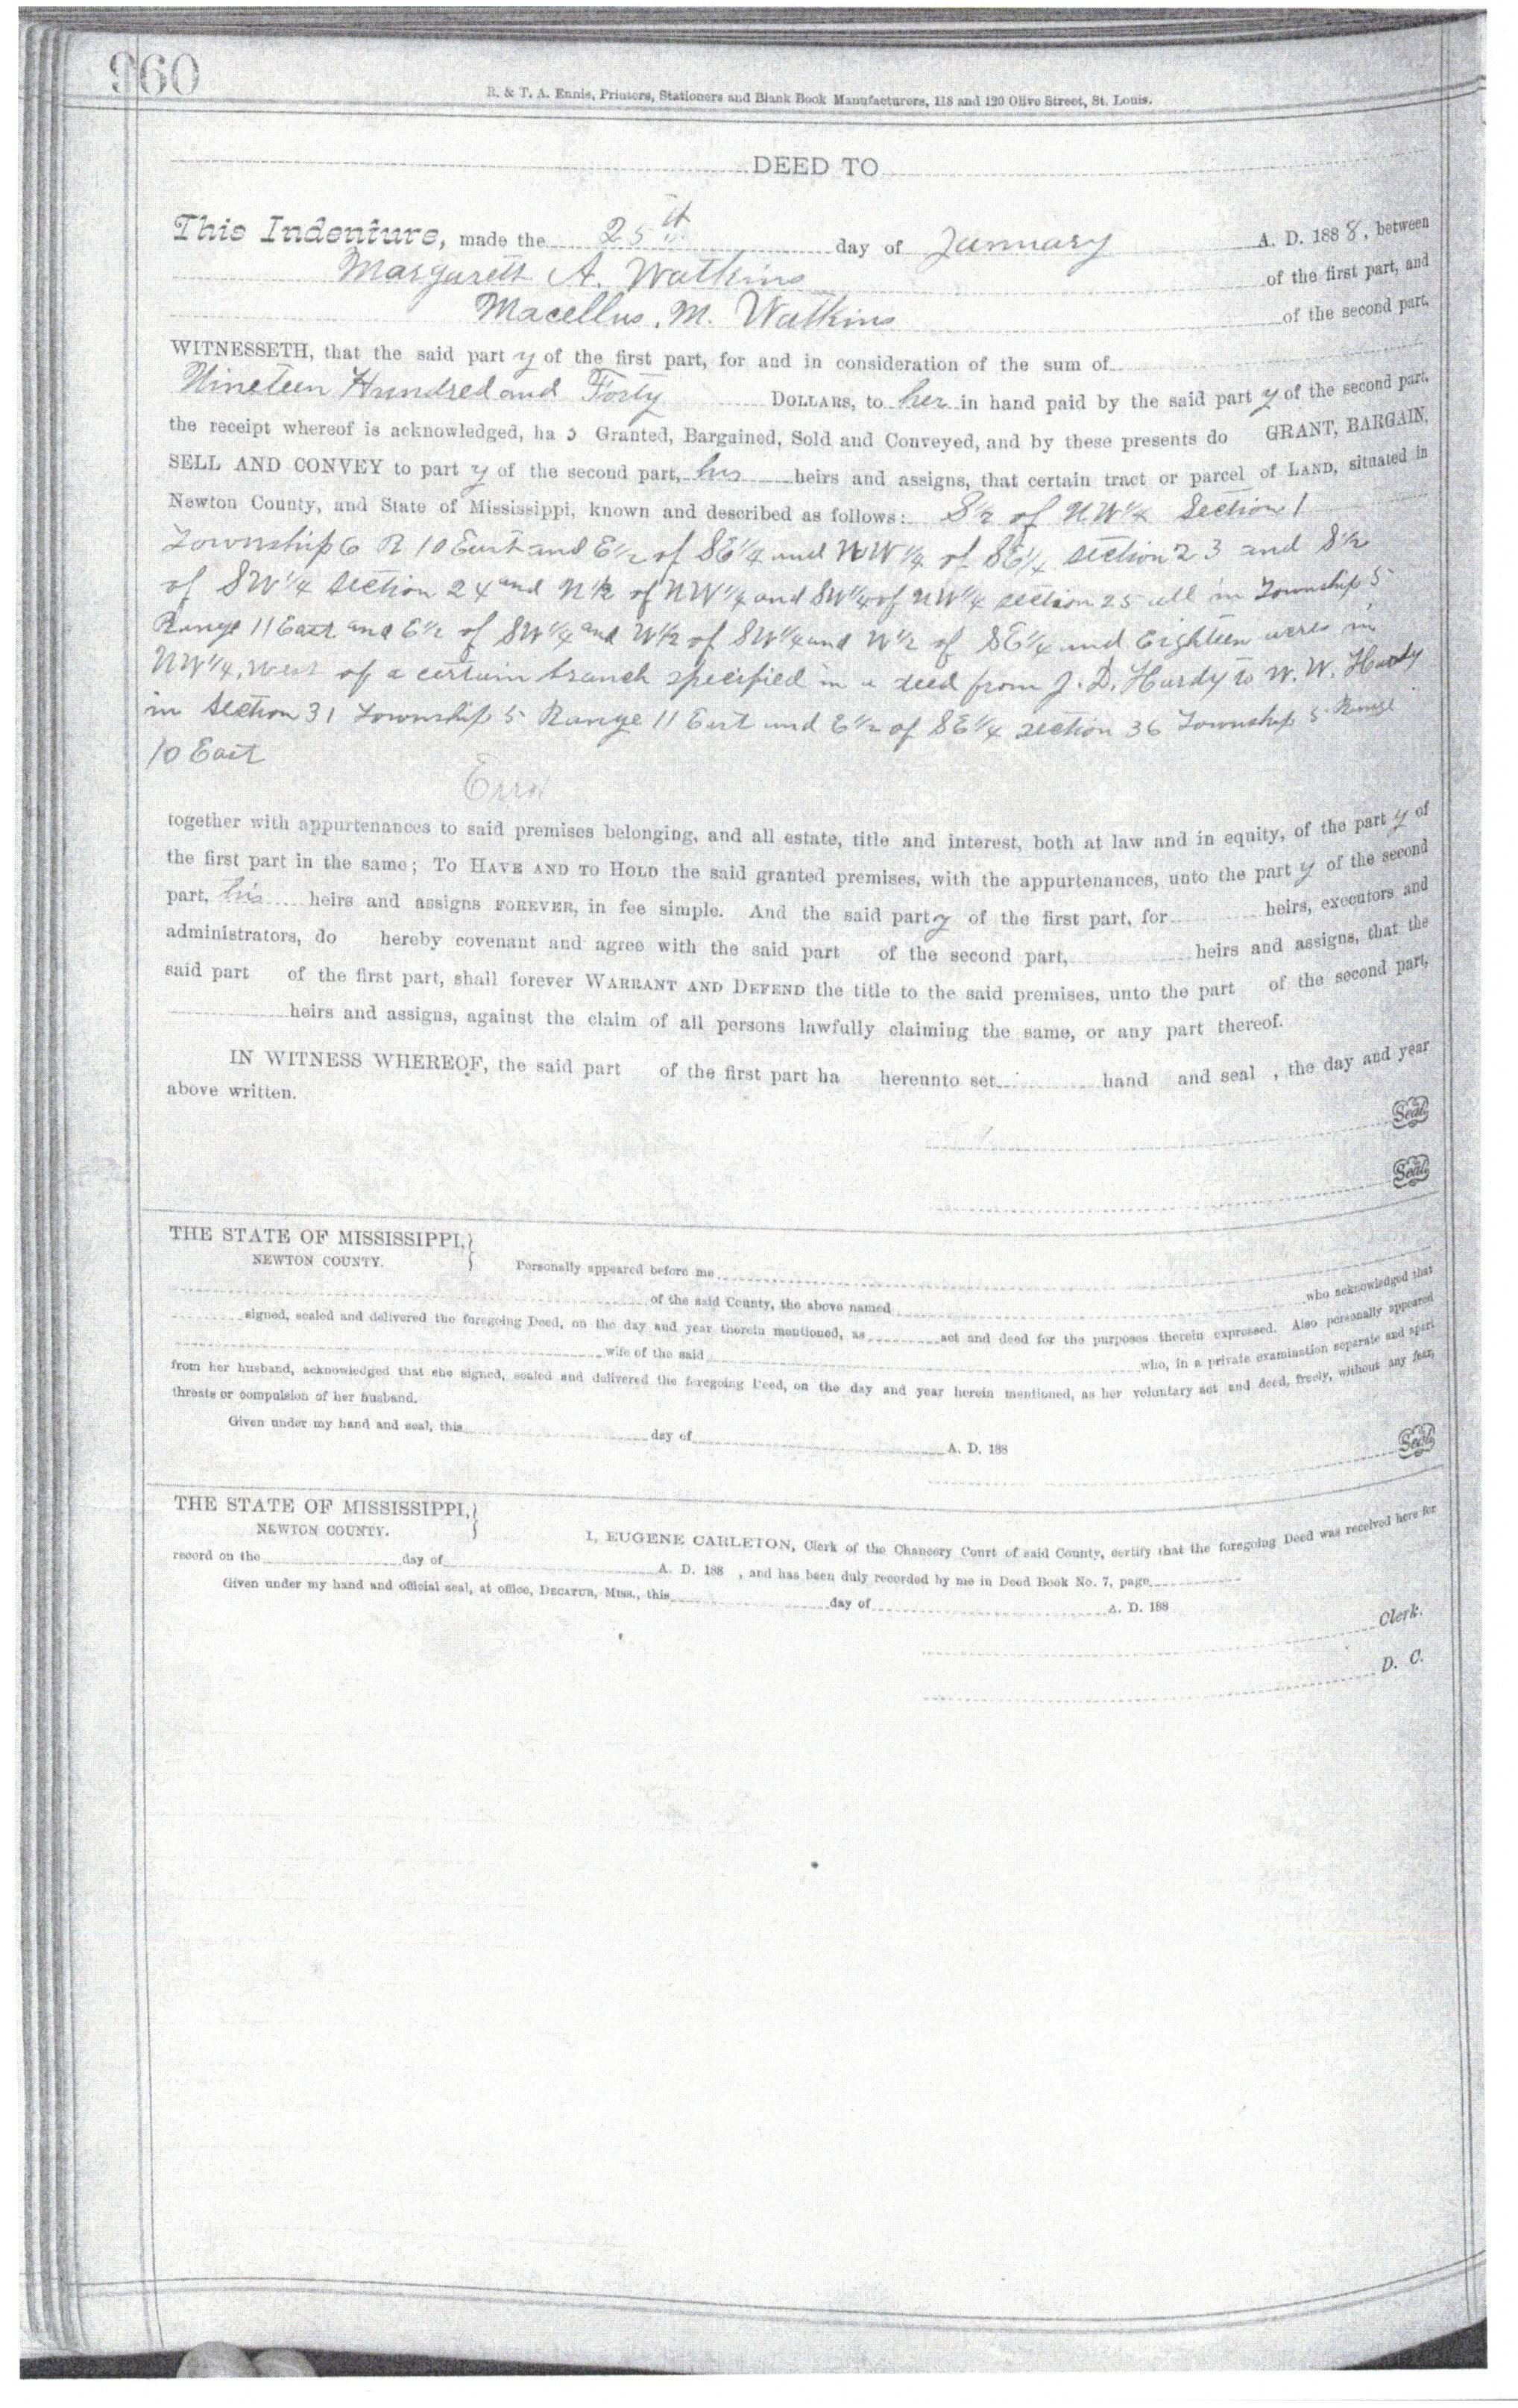 960
R. & T. A. Ennis, Printers, Stationers and Blank Book Manufacturers, 118 and 120 Olive Street, St. Louis.
DEED TO
This Indenture, made the 25th day of January A. D. 1888, between
Margarett A. Watkins of the first part, and
Macellus. M. Watkins of the second part.
WITNESSETH, that the said party of the first part, for and in consideration of the sum of
Nineteen Hundred and Forty DOLLARS, to her in hand paid by the said party of the second part,
the receipt whereof is acknowledged, has Granted, Bargained, Sold and Conveyed, and by these presents do GRANT, BARGAIN,
SELL AND CONVEY to party of the second part, his heirs and assigns, that certain tract or parcel of LAND, situated in
Newton County, and State of Mississippi, known and described as follows: S1/2 of NW1/4 Section 1
Township 6 R 10 East and E1/2 of SE1/4 and NW1/4 of SE1/4 section 23 and S1/2
of SW1/4 section 24 and N1/2 of NW1/4 and SW1/4 of NW1/4 section 25 all in Township 5
Range 11 East and E1/2 of SW1/4 and W1/2 of SW1/4 and W1/2 of SE1/4 and Eighteen acres in
NW1/4, West of a certain branch specified in a deed from J. D. Hardy to W. W. Hardy
in Section 31 Township 5 Range 11 East and E1/2 of SE1/4 section 36 Township 5 Range
10 East
Error
together with appurtenances to said premises belonging, and all estate, title and interest, both at law and in equity, of the party of
the first part in the same; TO HAVE AND TO HOLD the said granted premises, with the appurtenances, unto the party of the second
part, his heirs and assigns FOREVER, in fee simple. And the said party of the first part, for heirs, executors and
administrators, do hereby covenant and agree with the said part of the second part, heirs and assigns, that the
said part of the first part, shall forever WARRANT AND DEFEND the title to the said premises, unto the part of the second part,
heirs and assigns, against the claim of all persons lawfully claiming the same, or any part thereof.
IN WITNESS WHEREOF, the said part of the first part ha hereunto set hand and seal , the day and year
above written.
Seal
Seal
THE STATE OF MISSISSIPPI,}
NEWTON COUNTY. } Personally appeared before me
of the said County, the above named who acknowledged that
signed, sealed and delivered the foregoing Deed, on the day and year therein mentioned, as act and deed for the purposes therein expressed. Also personally appeared
wife of the said who, in a private examination separate and apart
from her husband, acknowledged that she signed, sealed and delivered the foregoing Deed, on the day and year herein mentioned, as her voluntary act and deed, freely, without any fear,
threats or compulsion of her husband.
Given under my hand and seal, this day of A. D. 188
Seal
THE STATE OF MISSISSIPPI,}
NEWTON COUNTY. } I, EUGENE CARLETON, Clerk of the Chancery Court of said County, certify that the foregoing Deed was received here for
record on the day of A. D. 188 , and has been duly recorded by me in Deed Book No. 7, page
Given under my hand and official seal, at office, DECATUR, MISS., this day of A. D. 188
Clerk.
D. C.